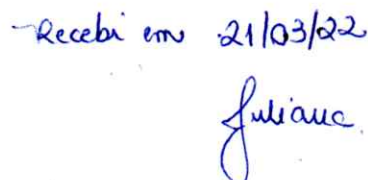 Recebi em 21/03/22
Juliana